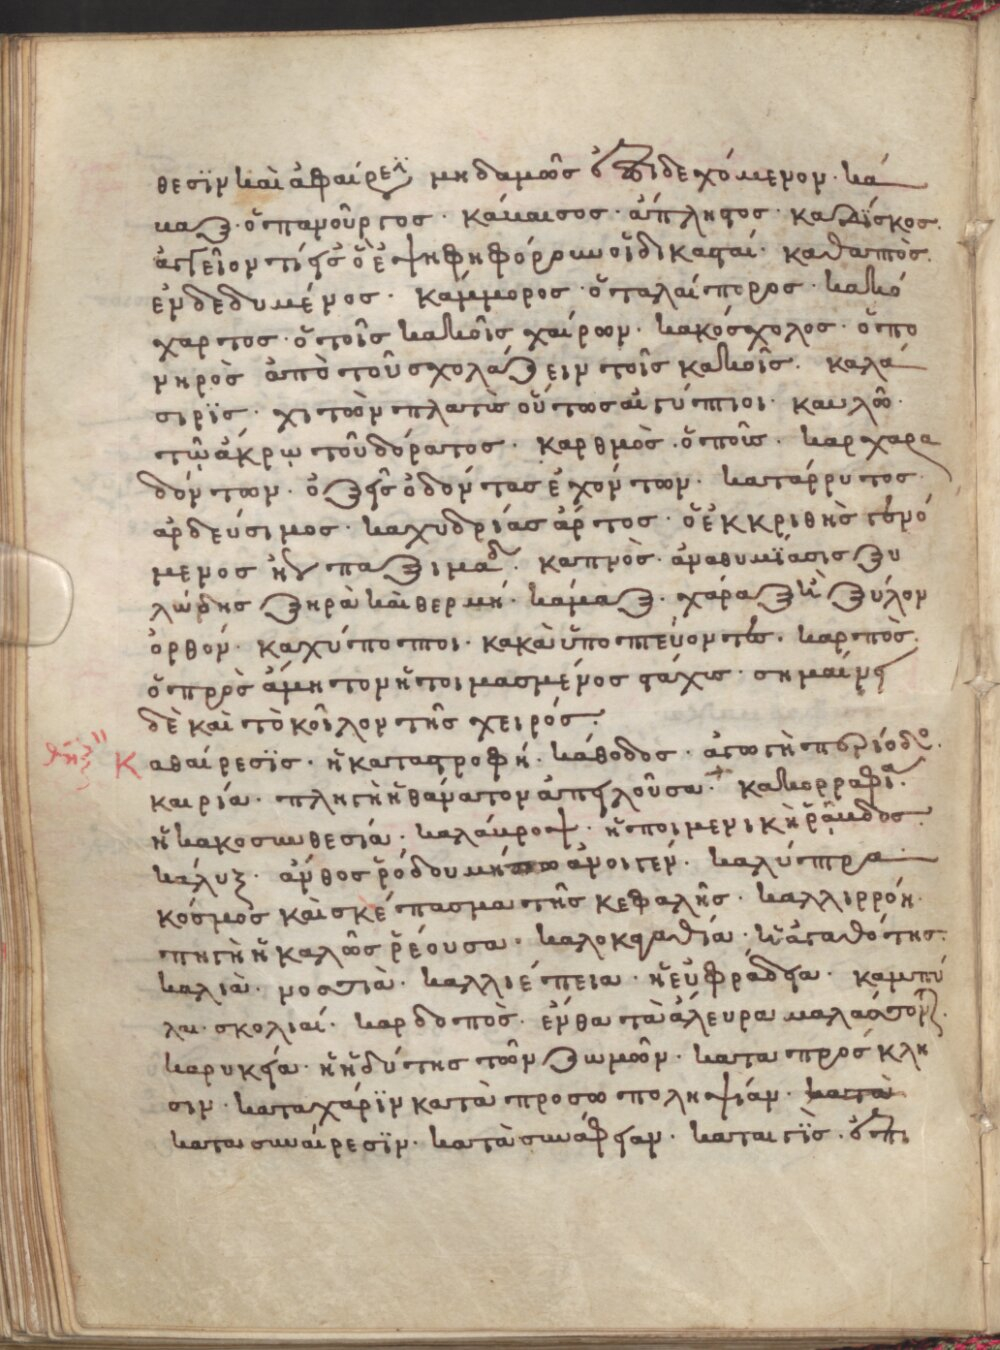 θεσϊν καὶ ἀφαίρεσϊν μηδαμῶς ἐπιδεχόμενον · κά
μαξ · ὁ πανοῦργος · κάμαισος · ἄπληστος · καδΐσκος ·
ἀγγεῖον τί εἰς ὃ ἐψηφηφόρουν οἱ δικασταί · καθαπὸς ·
ἐνδεδυμένος · κάμμορος · ὁ ταλαίπορος · κακό
χαρτος · ὁ τοῖς κακοῖς χαίρων · κακόσχολος · ὁ πο
νηρὸς ἀπὸ τοῦ σχολάζειν τοῖς κακοῖς · καλά
σιρϊς · χιτὼν πλατὺς οὕτως αἰγύπτιοι · καυλῶ ·
τῷ ἄκρῳ τοῦ δόρατος · καρθμὸς · ὁ ποῦς · καρχαρα
δόντων · ὀξεῖς ὀδόντας ἐχόντων · κατάρρυτος ·
ἀρδεύσιμος · καχυδρίας ἄρτος · ὁ ἐκ κριθῆς γενό
μενος ἢ παξιμάδ · καπνὸς · ἀναθυμΐασις ξυ
λώδης ξηρὰ καὶ θερμή · κάμαξ · χάραξ καὶ ξύλον
ὀρθόν · καχύποπτοι · κακὰ ὑποπτεύοντες · καρπὸς ·
ὁ πρὸς ἄμητον ἡτοιμασμένος στάχυς · σημαίνει
δὲ καὶ τὸ κοῖλον τῆς χειρός ·
Καθαίρεσϊς · ἡ καταστροφή · κάθοδος · ἀγωγὴ περιόδου ·
καιρία · πληγὴ ἡ θάνατον ἀπειλοῦσα · κακορραφία ·
ἡ κακοσυνθεσιά · καλάυροψ · ἡ ποιμενικὴ ῥάβδος ·
κάλυξ · ἄνθος ῥόδου μήπω ἀνοιγέν · καλύπτρα
κόσμος καὶ σκέπασμα τῆς κεφαλῆς · καλλιρρόη ·
πηγὴ ἡ καλῶς ῥέουσα · καλοκαγαθία · ἡ ἀγαθότης ·
καλιὰ · νοσσιὰ · καλλιέπεια · ἡ εὐφράδεια · καμπύ
λαι · σκολιαί · καρδοπὸς · ἔνθα τὰ ἄλευρα μαλάσσουσιν ·
καρυκεία · ἡ ἡδύτης τῶν ζωμῶν · κατα πρόσκλη
σιν · καταχάρϊν κατὰ προσωποληψίαν · κατὰ
κατασυναίρεσϊν · κατὰ συνάφειαν · καταιγϊς · ἐπι